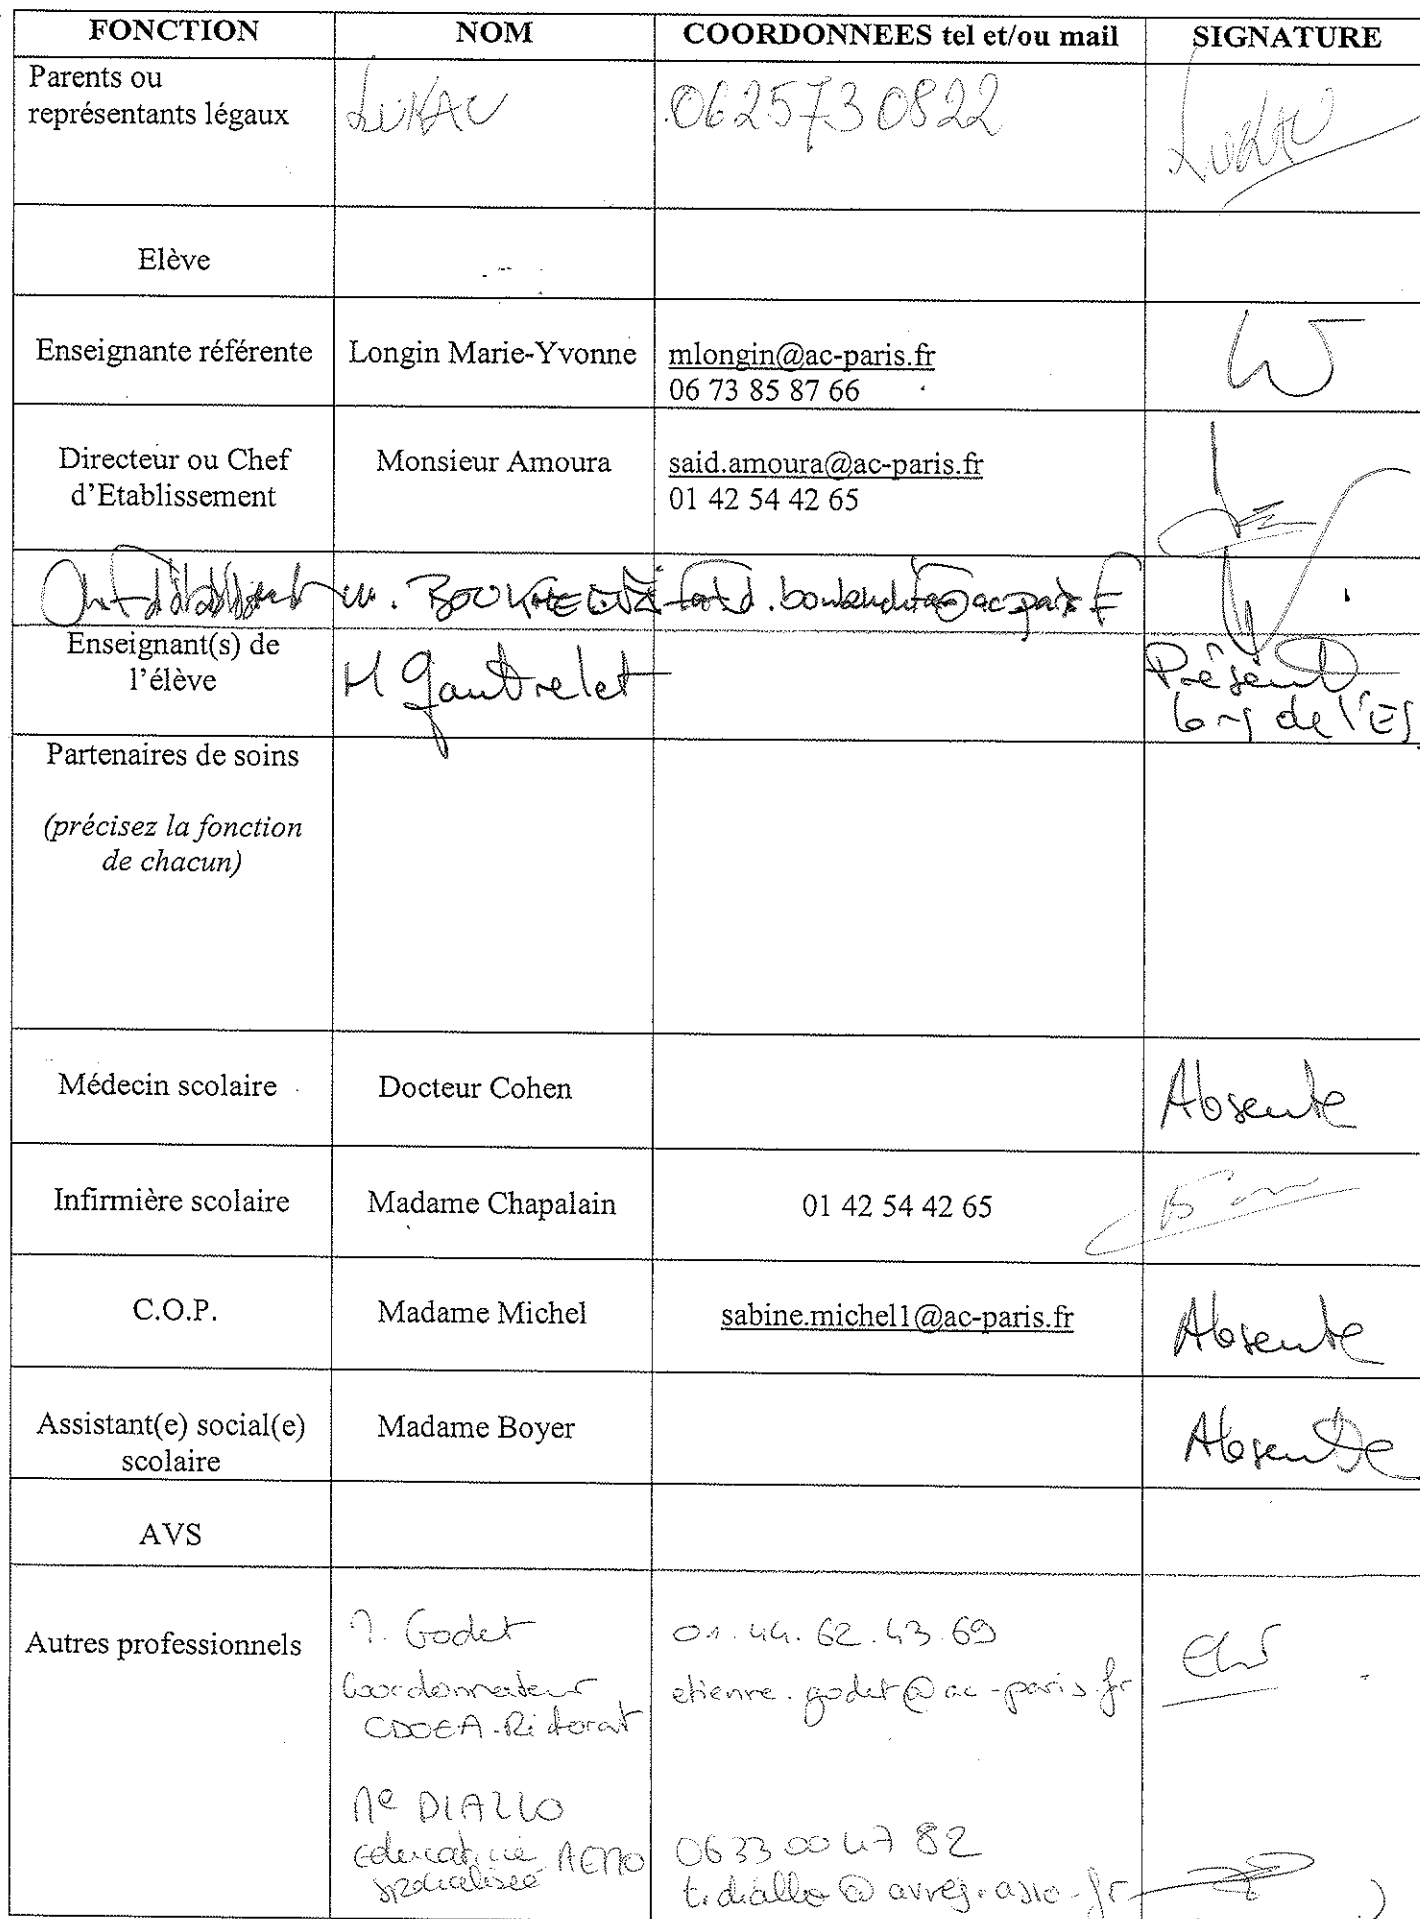 FONCTION NOM COORDONNEES tel et/ou mail SIGNATURE
Parents ou
représentants légaux LUKAC 0625730822 LUKAC
Elève
Enseignante référente Longin Marie-Yvonne mlongin@ac-paris.fr
06 73 85 87 66
Directeur ou Chef
d'Etablissement Monsieur Amoura said.amoura@ac-paris.fr
01 42 54 42 65
M.
Enseignant(s) de
l'élève M Gautrelet Présent
lors de l'ES
Partenaires de soins
(précisez la fonction
de chacun)
Médecin scolaire Docteur Cohen Absente
Infirmière scolaire Madame Chapalain 01 42 54 42 65
C.O.P. Madame Michel sabine.michel1@ac-paris.fr Absente
Assistant(e) social(e)
scolaire Madame Boyer Absente
AVS
Autres professionnels M. Godet 01.44.62.43.69
Coordonnateur etienne.godet@ac-paris.fr
CDOEA.Rectorat
Me DIALLO
Educatrice AEMO 06 33 00 47 82
spécialisée t.diallo@avvej.asso.fr